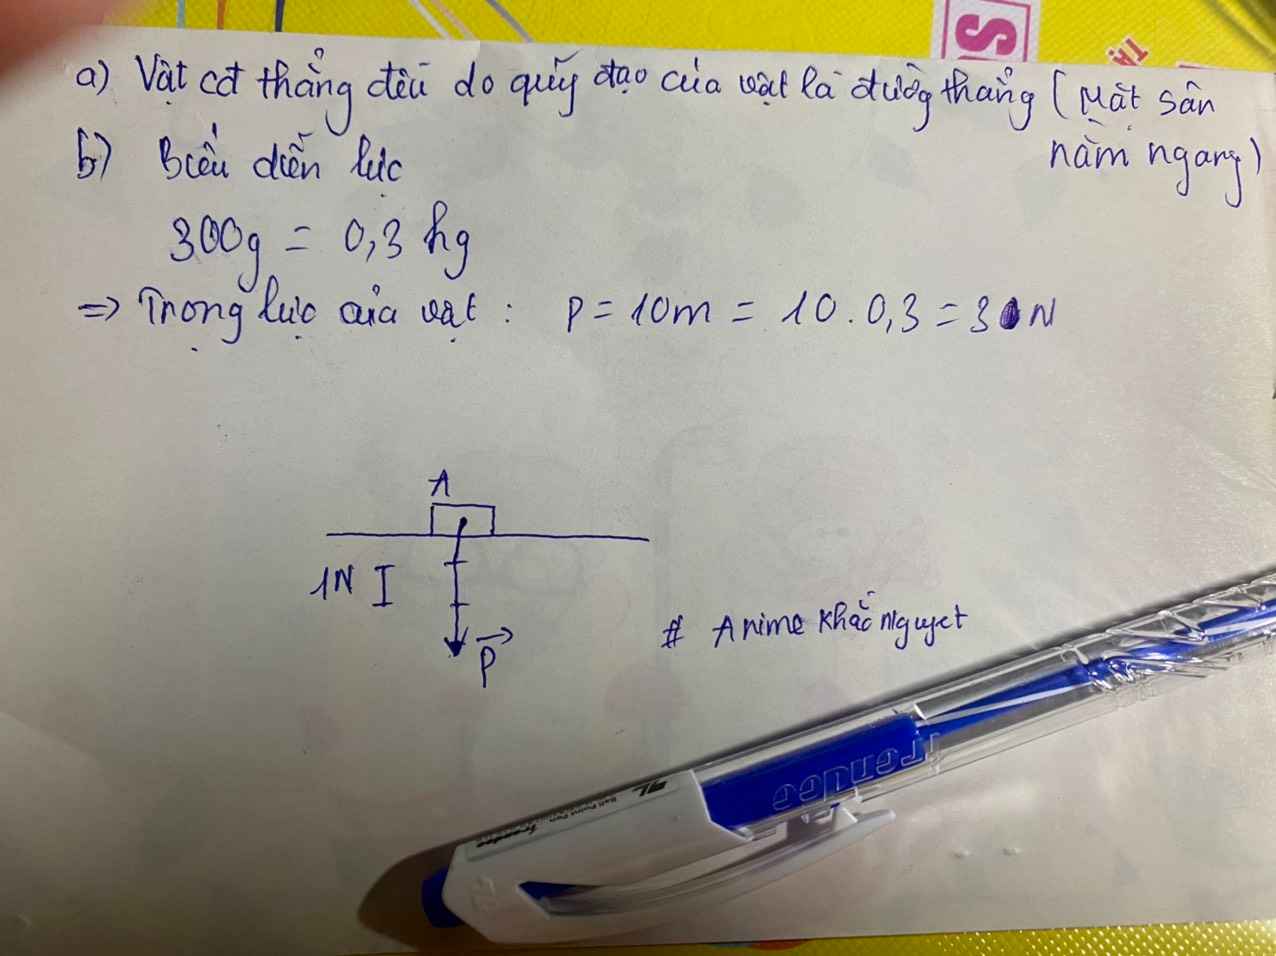 S
a) Vật cđ thẳng đều do quỹ đạo của vật là đường thẳng (Mặt sàn
nằm ngang)
b) Biểu diễn lực
300g = 0,3 kg
=> Trọng lực của vật : P = 10m = 10 . 0,3 = 3 N
A
1N
P
# Anime Khắc Nguyệt
Trendee